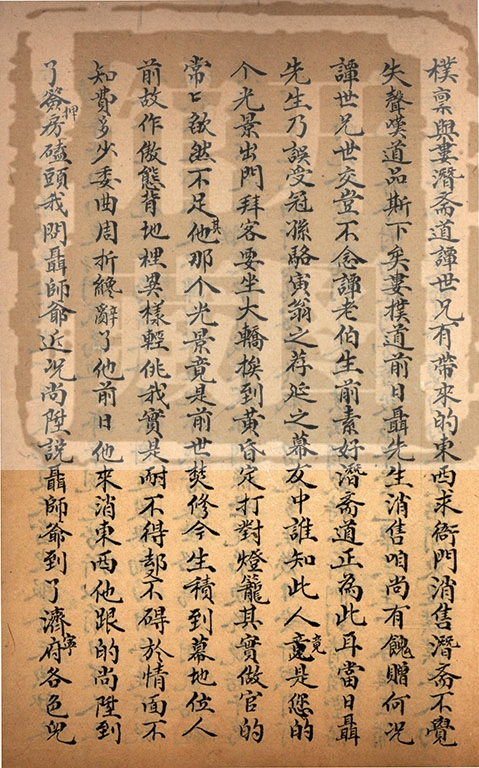 樸稟與婁潛斋道譚世兄有帶來的東西求衙門消售潛斋不覺
失聲嘆道品斯下矣婁樸道前日聶先生消售咱尚有餽贈何况
譚世兄世交豈不念譚老伯生前素好潛斋道正為此耳當日聶
先生乃誤受冠孫駱寅翁之荐延之幕友中誰知此人竟是您的
个光景出門拜客要坐大轎挨到黃昏定打對燈籠其實做官的
常〻欿然不足他那个光景竟是前世焚修今生積到幕地位人
其
前故作傲態背地裡異樣輕佻我實是耐不得却又不碍於情面不
知費多少委曲周折纔辭了他前日他來消東西他跟的尚陞到
了簽房磕頭我問聶師爺近况尚陞説聶師爺到了濟府各色兒
押
寧
竟